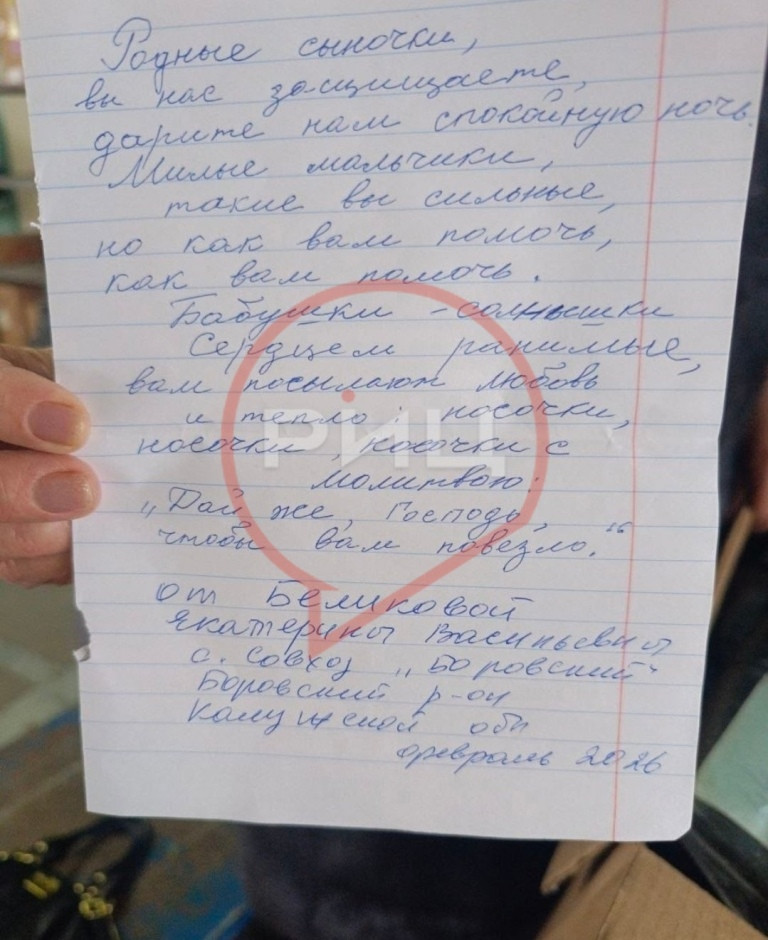 Родные сыночки,
вы нас защищаете,
дарите нам спокойную ночь.
Милые мальчики,
такие вы сильные,
но как вам помочь,
как вам помочь.
Бабушки - солнышки
Сердцем ранимые,
вам посылают любовь
и тепло: носочки,
носочки, носочки с
молитвою:
„Дай же, Господь,
чтобы вам повезло."
от Беликовой
Екатерины Васильевны
с. совхоз „Боровский"
Боровский р-он
Калужской обл
февраль 2026
РИЦ